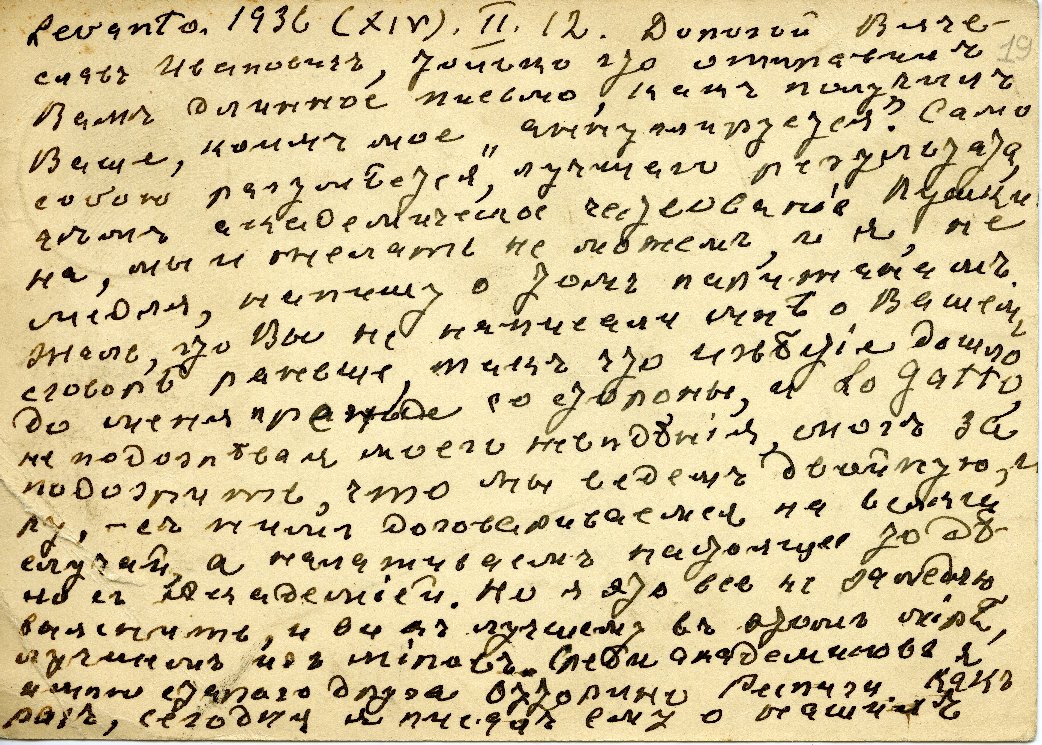 Levanto. 1936 (XIV). II. 12. Дорогой Вяче-
19
славъ Ивановичъ, только что отправилъ
Вамъ длинное письмо, какъ получилъ
Ваше, коимъ мое „аннулируется". Само
собою разумѣется, лучшаго результата,
чѣмъ академическое чествованіе Пушки-
на, мы и желать не можемъ, и я, не
медля, напишу о томъ парижанамъ.
Жаль, что Вы не написали мнѣ о Вашемъ
сговорѣ раньше, такъ что извѣстіе дошло
до меня прежде со стороны, и Lo Gatto,
не подозрѣвая моего невѣдѣнія, могъ за-
подозрить, что мы ведемъ двойную иг-
ру, – съ нимъ договариваемся на всякій
случай, а налаживаемъ настоящее то дѣ-
ло съ Академіей. Но я это все не замедлю
выяснить, и все къ лучшему въ этомъ мірѣ,
лучшемъ изъ міровъ. Среди академиковъ я
имѣю стараго друга Отторино Респиги. Какъ
разъ, сегодня я писалъ ему о нашихъ